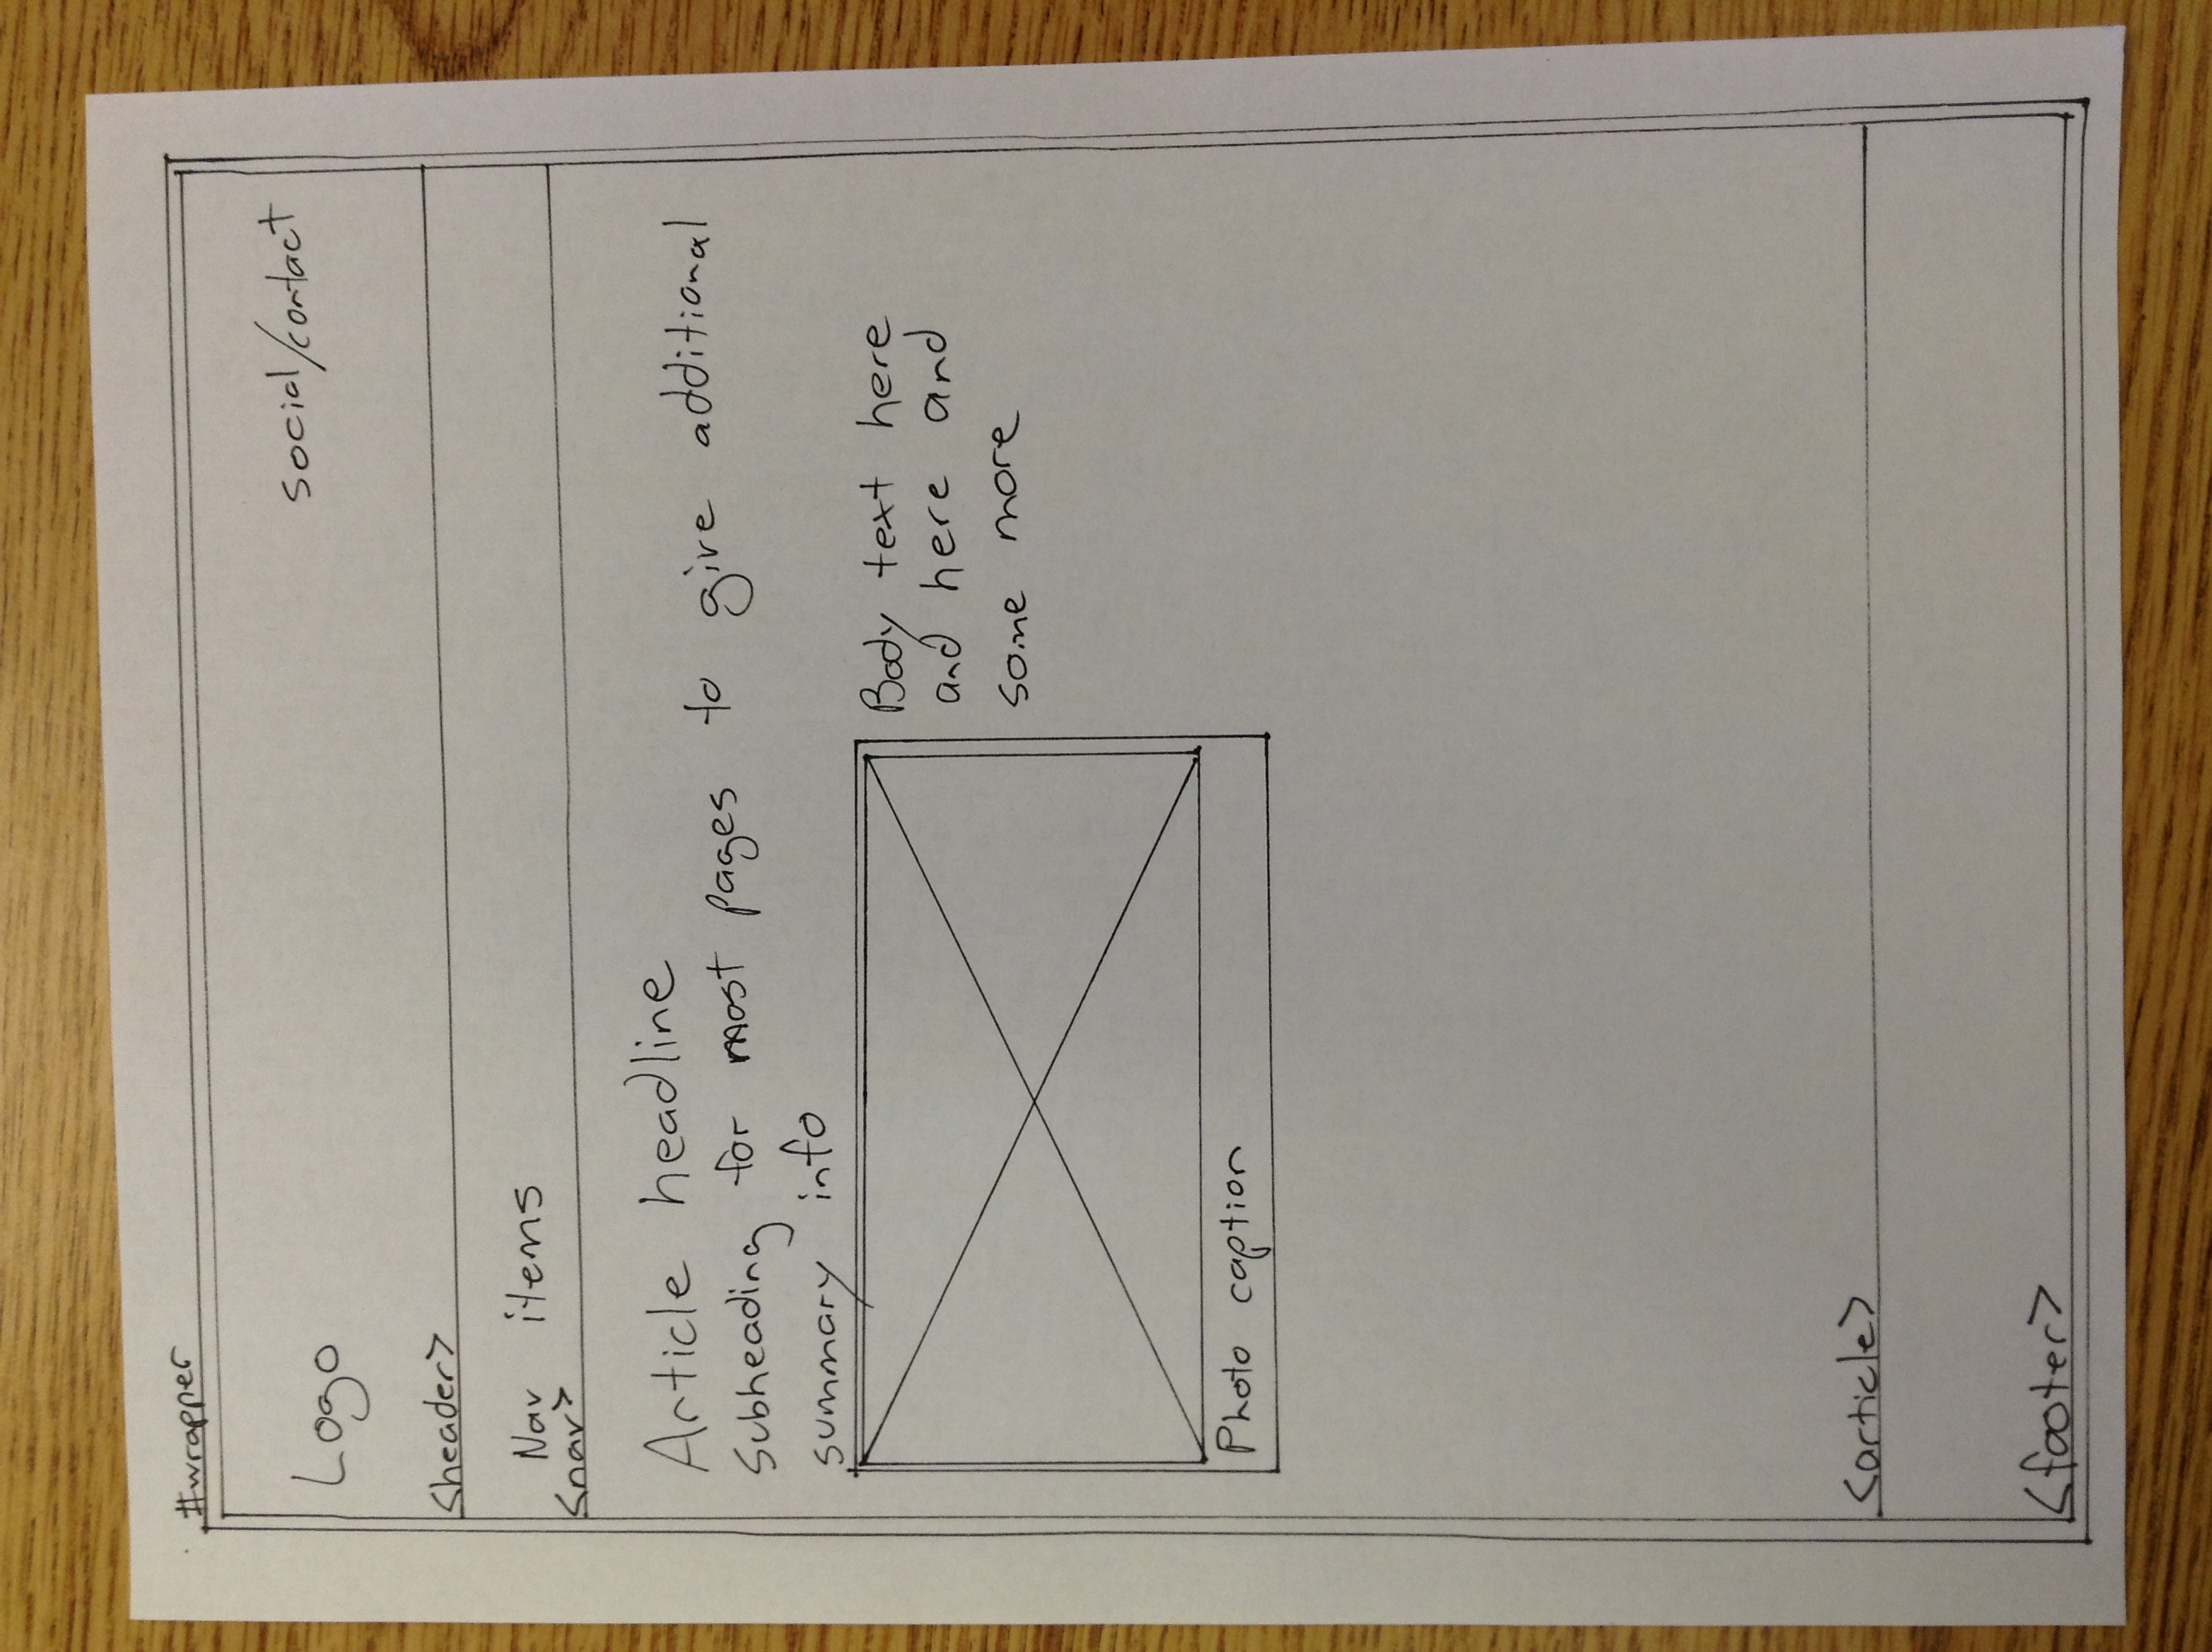 #wrapper
Logo
social/contact
<header>
Nav items
<nav>
Article headline
Subheading for most pages to give additional
summary info
Body text here
and here and
some more
Photo caption
<article>
<footer>